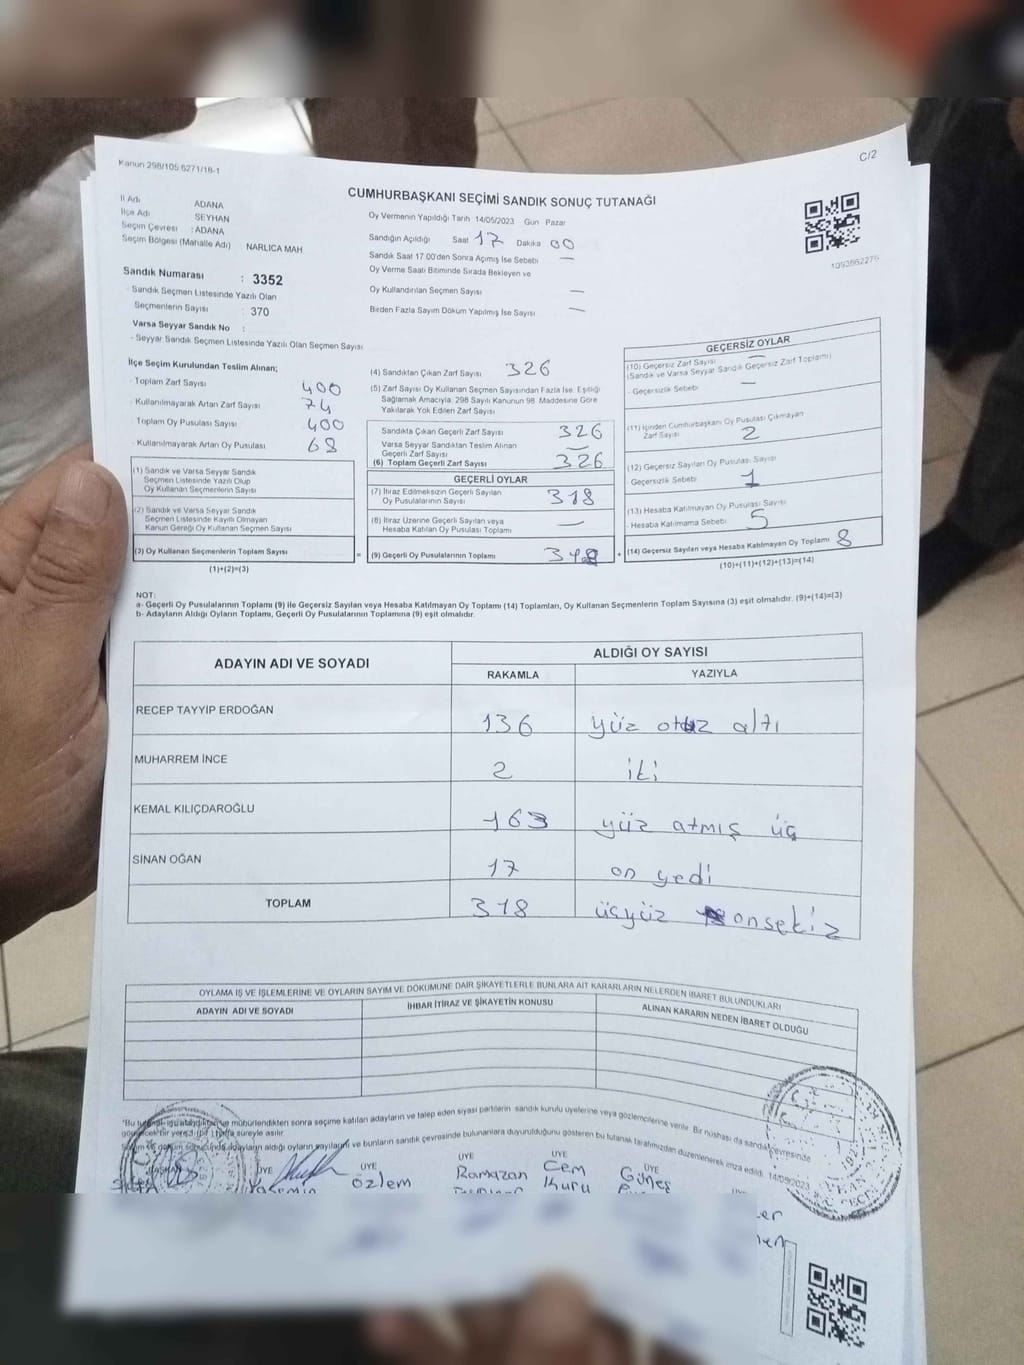 Kanun 298/105 6271/18-1
C/2
CUMHURBAŞKANI SEÇİMİ SANDIK SONUÇ TUTANAĞI
İl Adı ADANA
İlçe Adı SEYHAN
Seçim Çevresi : ADANA
Seçim Bölgesi (Mahalle Adı) : NARLICA MAH
Oy Vermenin Yapıldığı Tarih 14/05/2023 Gün Pazar
Sandığın Açıldığı Saat 17 Dakika 00
Sandık Saat 17.00'den Sonra Açılmış İse Sebebi —
Oy Verme Saati Bitiminde Sırada Bekleyen ve
Oy Kullandırılan Seçmen Sayısı —
Birden Fazla Sayım Döküm Yapılmış İse Sayısı —
1093562275
Sandık Numarası : 3352
- Sandık Seçmen Listesinde Yazılı Olan
Seçmenlerin Sayısı : 370
Varsa Seyyar Sandık No :
- Seyyar Sandık Seçmen Listesinde Yazılı Olan Seçmen Sayısı
İlçe Seçim Kurulundan Teslim Alınan;
- Toplam Zarf Sayısı 400
- Kullanılmayarak Artan Zarf Sayısı 74
- Toplam Oy Pusulası Sayısı 400
- Kullanılmayarak Artan Oy Pusulası 68
(1) Sandık ve Varsa Seyyar Sandık
Seçmen Listesinde Yazılı Olup
Oy Kullanan Seçmenlerin Sayısı
(2) Sandık ve Varsa Seyyar Sandık
Seçmen Listesinde Kayıtlı Olmayan
Kanun Gereği Oy Kullanan Seçmen Sayısı
(3) Oy Kullanan Seçmenlerin Toplam Sayısı =
(1)+(2)=(3)
(4) Sandıktan Çıkan Zarf Sayısı 326
(5) Zarf Sayısı Oy Kullanan Seçmen Sayısından Fazla İse, Eşitliği
Sağlamak Amacıyla, 298 Sayılı Kanunun 98. Maddesine Göre
Yakılarak Yok Edilen Zarf Sayısı
Sandıkta Çıkan Geçerli Zarf Sayısı 326
Varsa Seyyar Sandıktan Teslim Alınan
Geçerli Zarf Sayısı —
(6) Toplam Geçerli Zarf Sayısı 326
GEÇERLİ OYLAR
(7) İtiraz Edilmeksizin Geçerli Sayılan
Oy Pusulalarının Sayısı 318
(8) İtiraz Üzerine Geçerli Sayılan veya
Hesaba Katılan Oy Pusulası Toplamı —
(9) Geçerli Oy Pusulalarının Toplamı 318 +
GEÇERSİZ OYLAR
(10) Geçersiz Zarf Sayısı —
(Sandık ve Varsa Seyyar Sandık Geçersiz Zarf Toplamı)
- Geçersizlik Sebebi —
(11) İçinden Cumhurbaşkanı Oy Pusulası Çıkmayan
Zarf Sayısı 2
(12) Geçersiz Sayılan Oy Pusulası Sayısı
- Geçersizlik Sebebi 1
(13) Hesaba Katılmayan Oy Pusulası Sayısı
- Hesaba Katılmama Sebebi 5
(14) Geçersiz Sayılan veya Hesaba Katılmayan Oy Toplamı 8
(10)+(11)+(12)+(13)=(14)
NOT:
a- Geçerli Oy Pusulalarının Toplamı (9) ile Geçersiz Sayılan veya Hesaba Katılmayan Oy Toplamı (14) Toplamları, Oy Kullanan Seçmenlerin Toplam Sayısına (3) eşit olmalıdır. (9)+(14)=(3)
b- Adayların Aldığı Oyların Toplamı, Geçerli Oy Pusulalarının Toplamına (9) eşit olmalıdır.
ADAYIN ADI VE SOYADI
ALDIĞI OY SAYISI
RAKAMLA YAZIYLA
RECEP TAYYİP ERDOĞAN 136 yüz otuz altı
MUHARREM İNCE 2 iki
KEMAL KILIÇDAROĞLU 163 yüz atmış üç
SİNAN OĞAN 17 on yedi
TOPLAM 318 üçyüz onsekiz
OYLAMA İŞ VE İŞLEMLERİNE VE OYLARIN SAYIM VE DÖKÜMÜNE DAİR ŞİKAYETLERLE BUNLARA AİT KARARLARIN NELERDEN İBARET BULUNDUKLARI
ADAYIN ADI VE SOYADI İHBAR İTİRAZ VE ŞİKAYETİN KONUSU ALINAN KARARIN NEDEN İBARET OLDUĞU
mühürlendikten sonra seçime katılan adayların ve talep eden siyasi partilerin sandık kurulu üyelerine veya gözlemcilerine verilir. Bir nüshası da sandık çevresinde
süreyle asılır.
adayların aldığı oyların sayılarını ve bunların sandık çevresinde bulunanlara duyurulduğunu gösteren bu tutanak tarafımızdan düzenlenerek imza edildi. 14/05/2023
ÜYE ÜYE ÜYE ÜYE ÜYE
Yasemin Özlem Ramazan Cem Güneş
Kuru